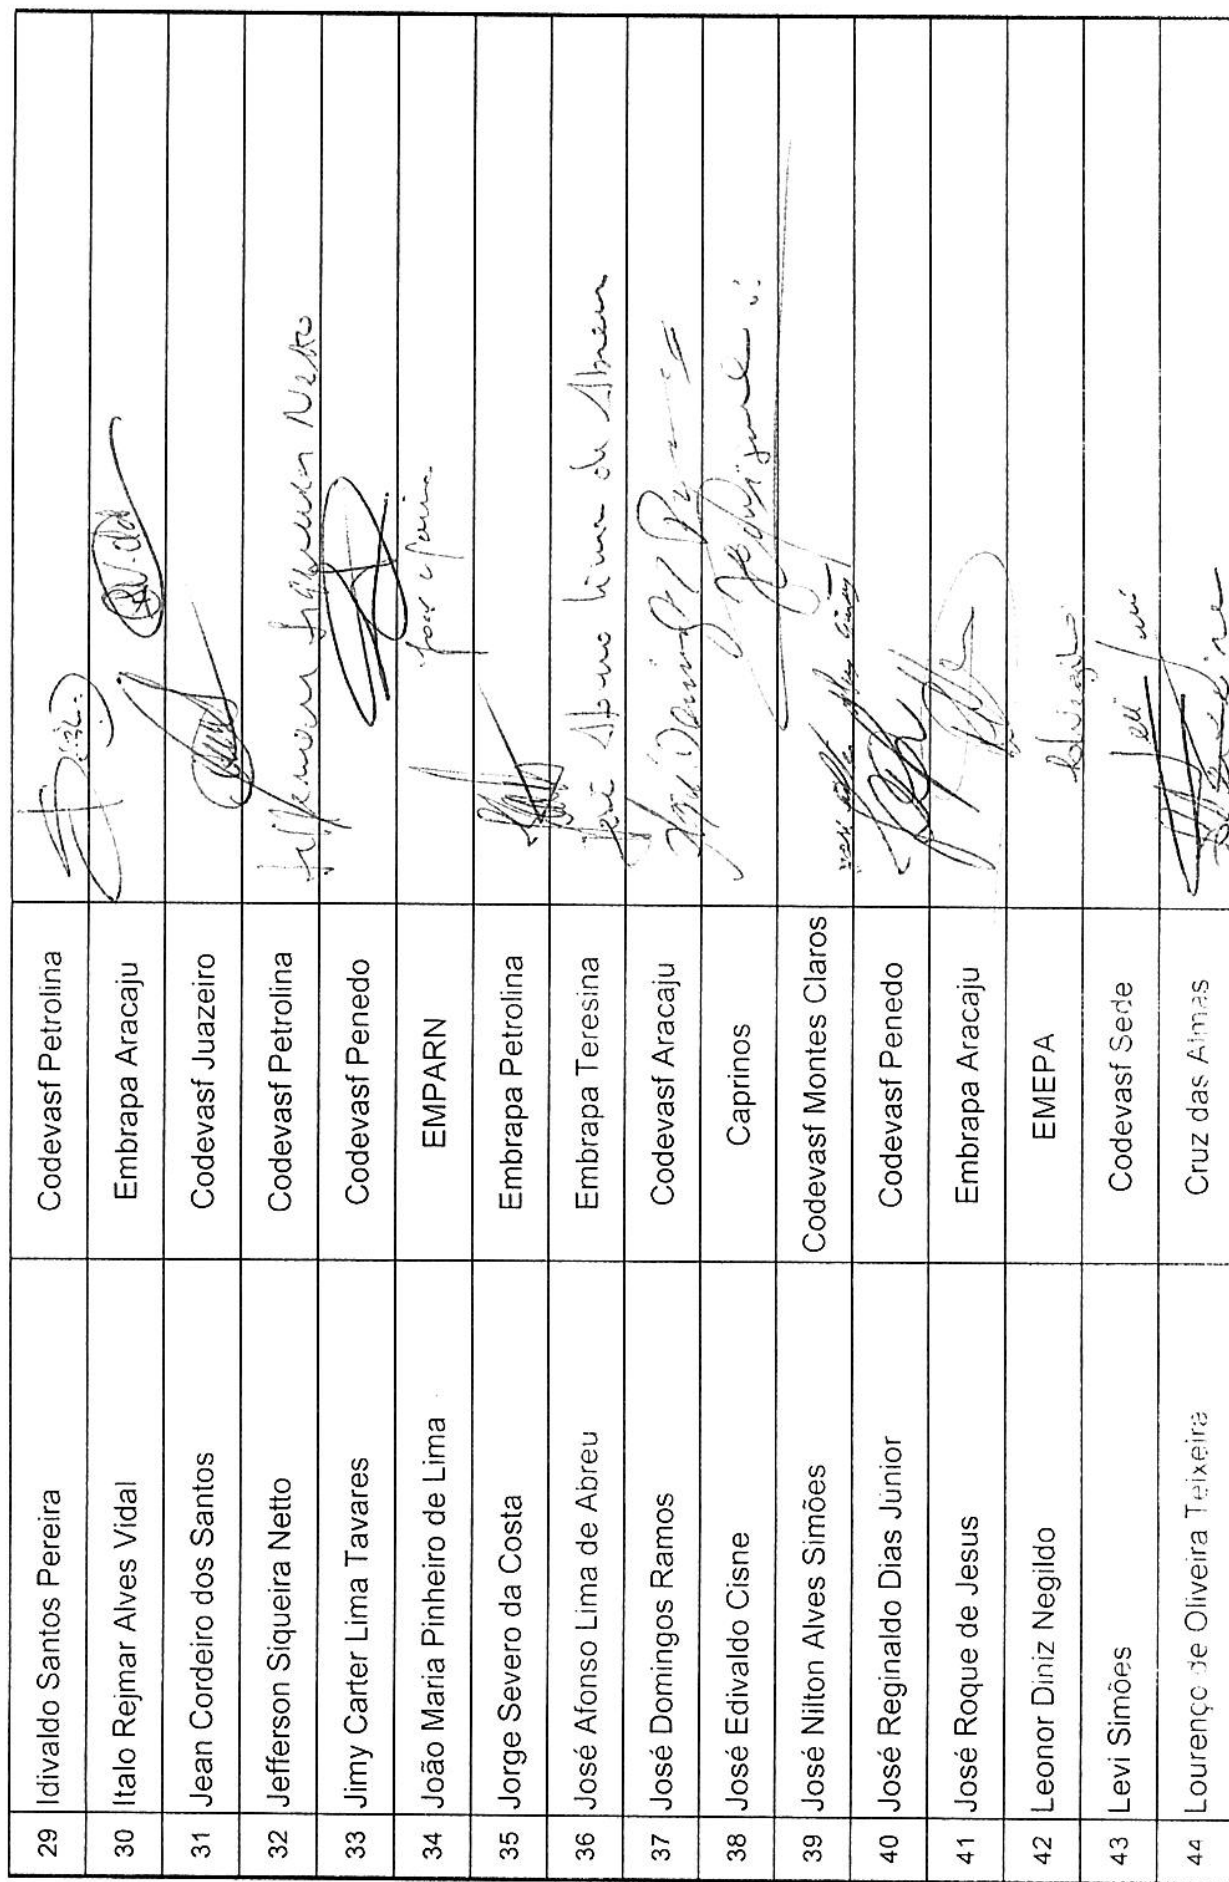 29 Idivaldo Santos Pereira Codevasf Petrolina
30 Italo Rejmar Alves Vidal Embrapa Aracaju
31 Jean Cordeiro dos Santos Codevasf Juazeiro
32 Jefferson Siqueira Netto Codevasf Petrolina Jefferson Siqueira Netto
33 Jimy Carter Lima Tavares Codevasf Penedo
34 João Maria Pinheiro de Lima EMPARN
35 Jorge Severo da Costa Embrapa Petrolina
36 José Afonso Lima de Abreu Embrapa Teresina José Afonso Lima de Abreu
37 José Domingos Ramos Codevasf Aracaju
38 José Edivaldo Cisne Caprinos
39 José Nilton Alves Simões Codevasf Montes Claros
40 José Reginaldo Dias Júnior Codevasf Penedo
41 José Roque de Jesus Embrapa Aracaju
42 Leonor Diniz Negildo EMEPA
43 Levi Simões Codevasf Sede
44 Lourenço de Oliveira Teixeira Cruz das Almas